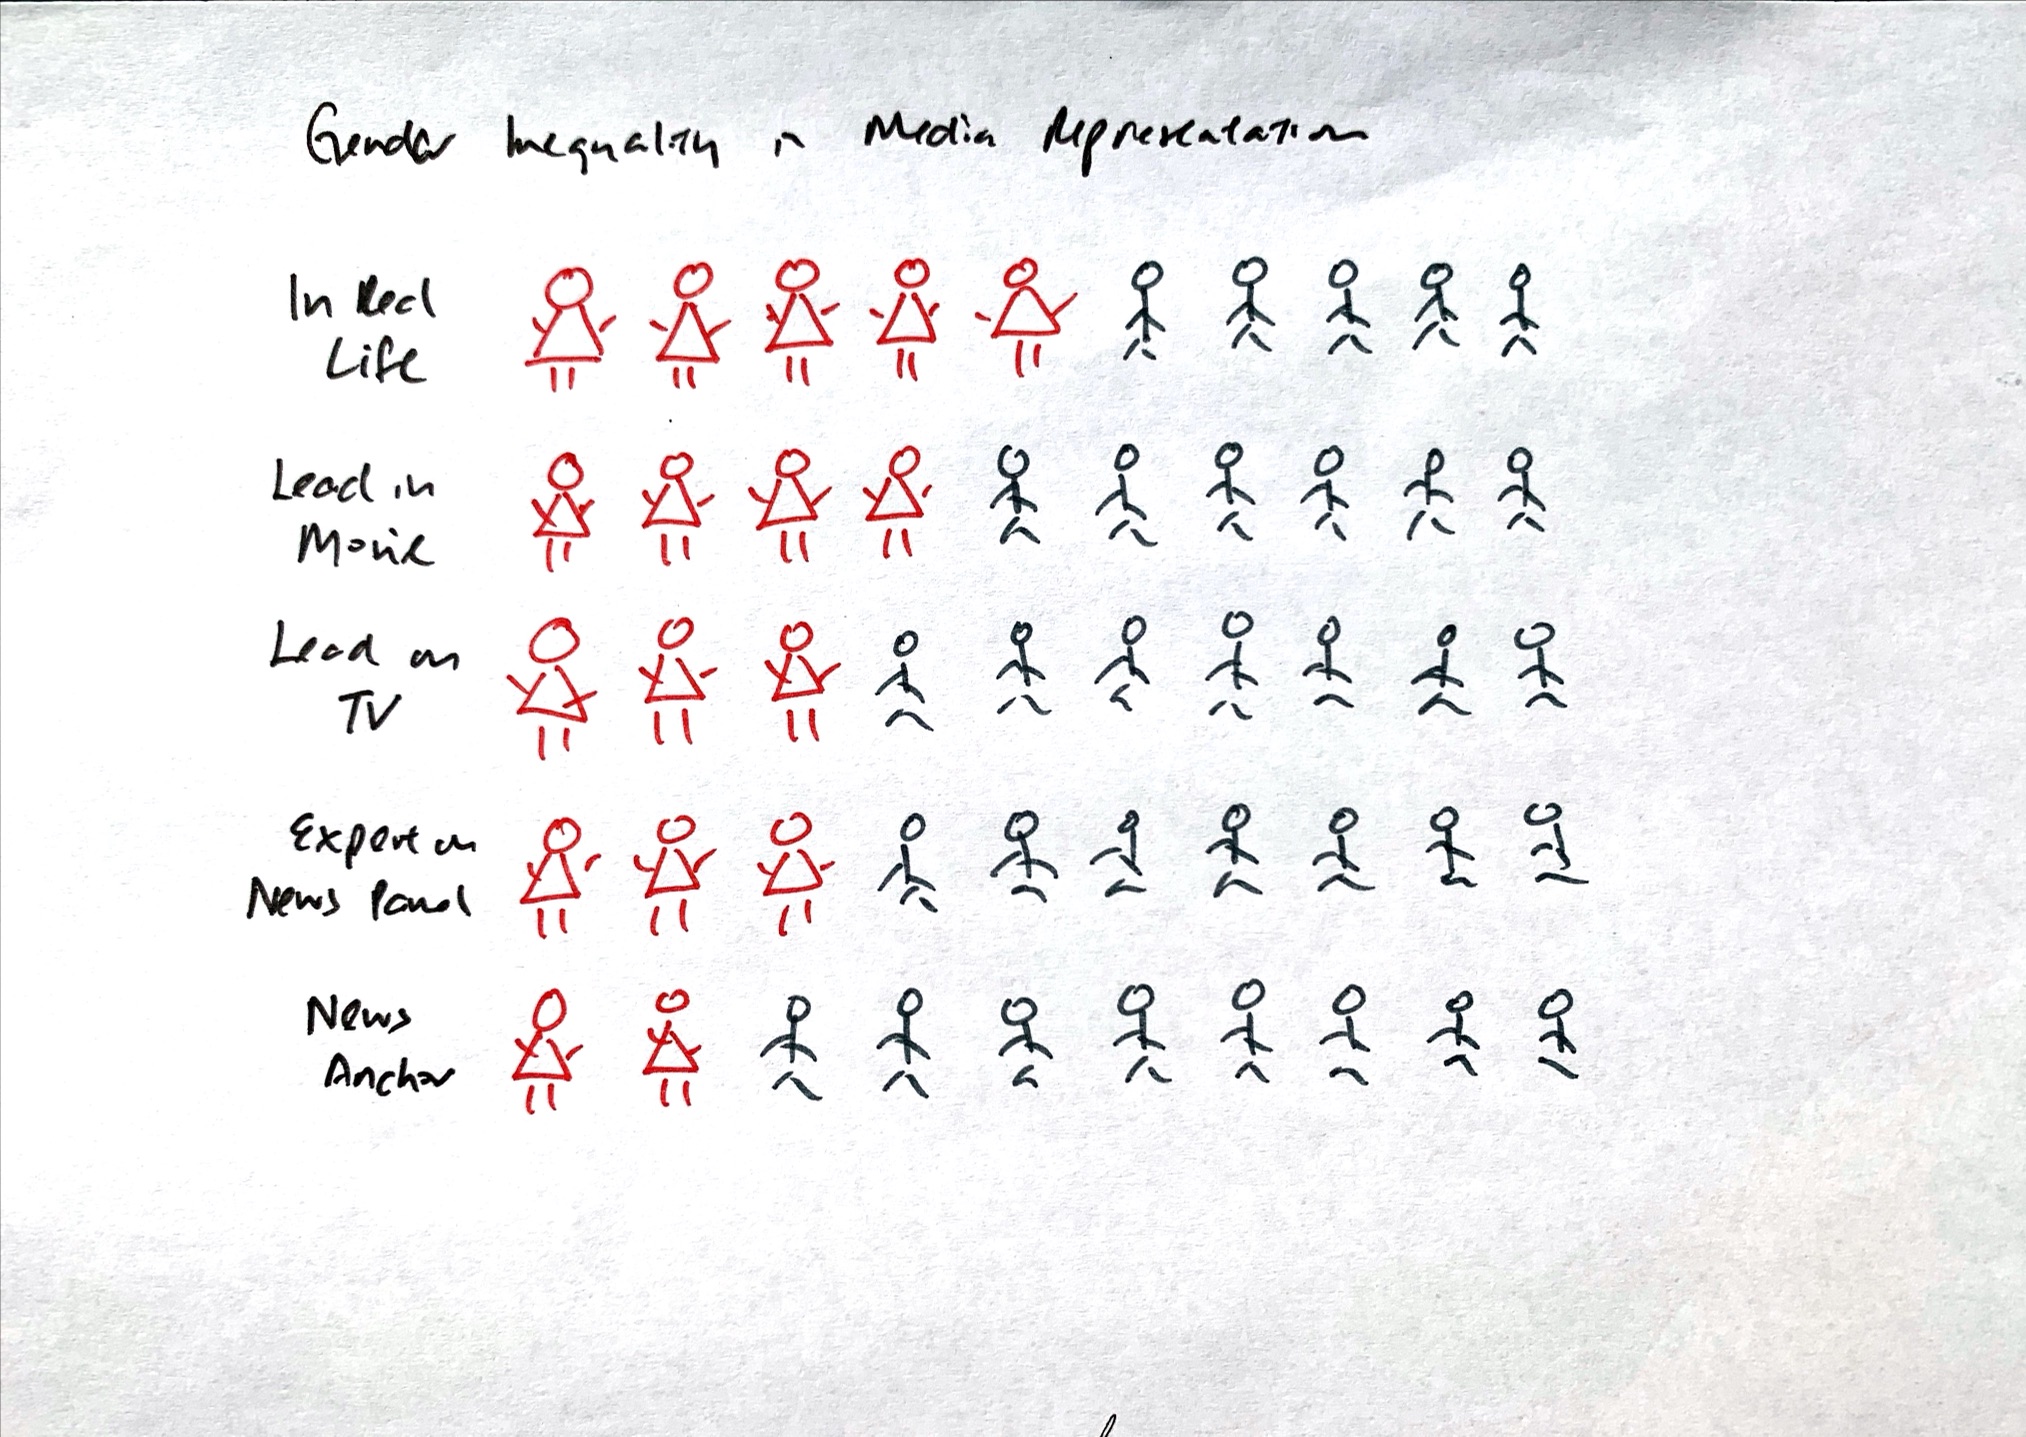 Gender Inequality in Media Representation
In Real
Life
Lead in
Movie
Lead on
TV
Expert on
News Panel
News
Anchor